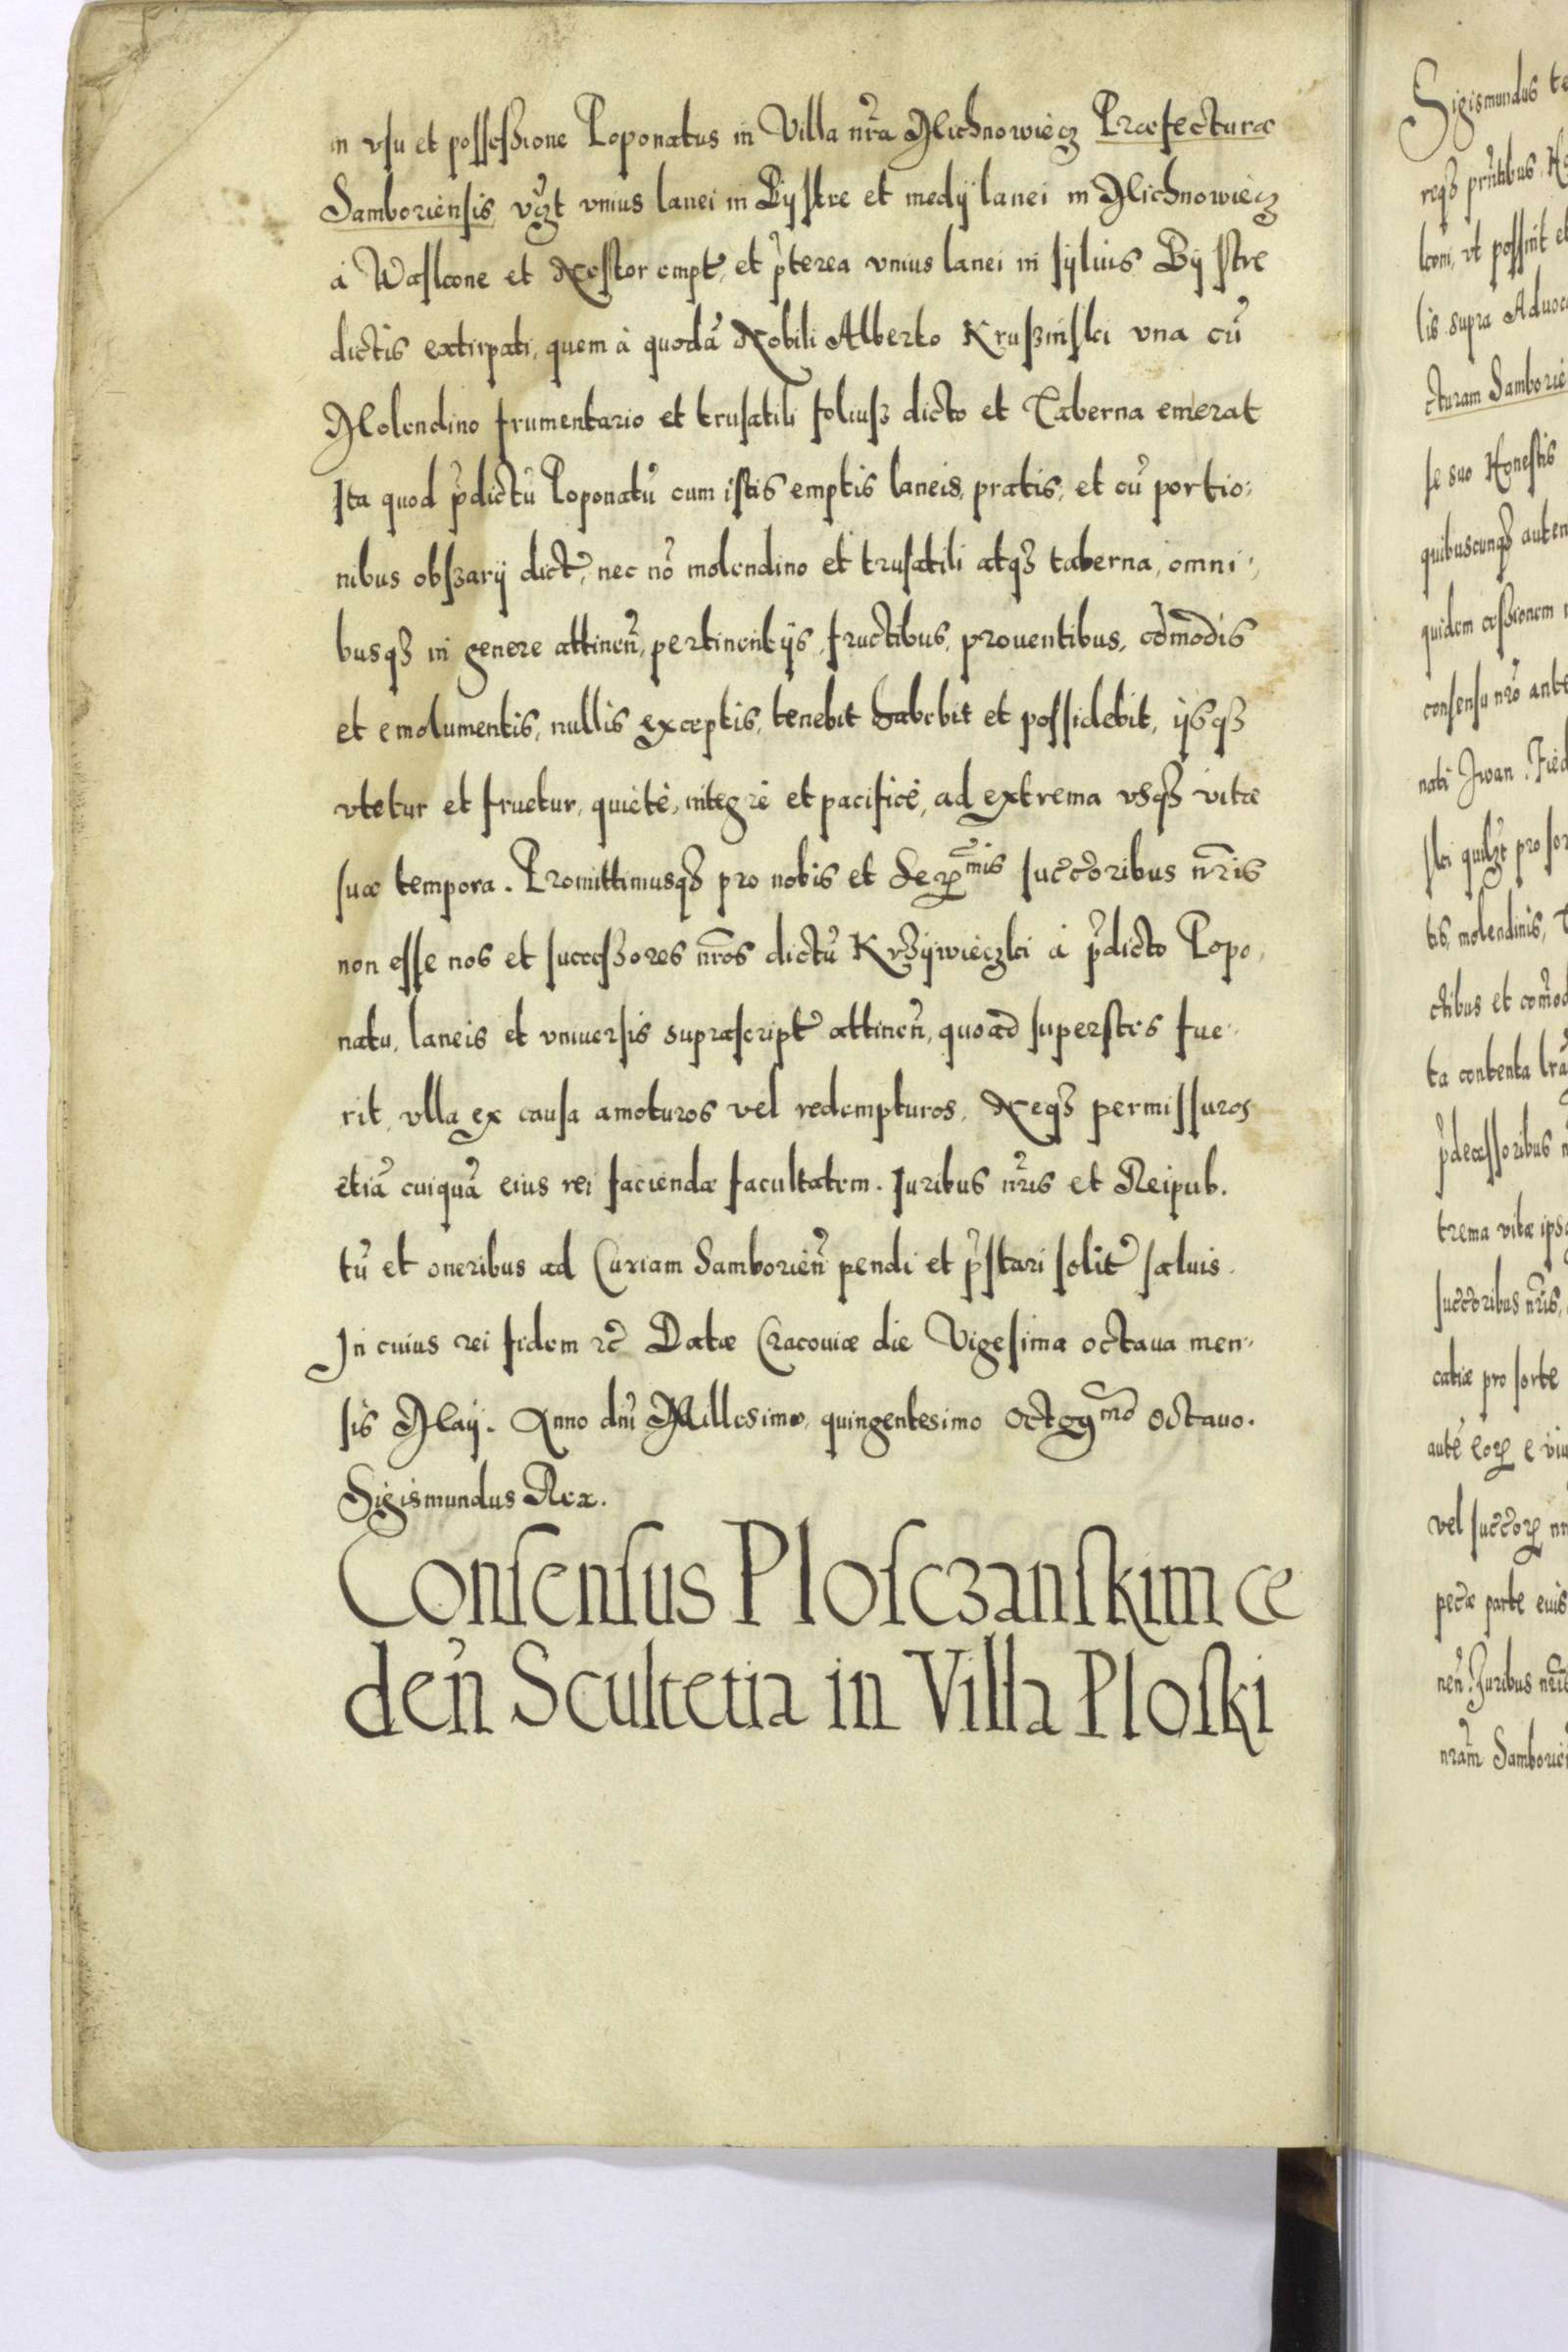 in vsu et possessione Poponatus in Villa nr̃a Michnowiecz Præfecturæ
Samboriensis, vz̃t vnius lanei in Bÿstre et medÿ lanei in Michnowiecz
à Waskone et Nestor empt, et p̃terea vnius lanei in sÿluis Bÿstre
dictis extirpati, quem à quodã Nobili Alberto Kruszinski vna cũ
Molendino frumentario et trusatili foliusz dicto et Taberna emerat
Ita quod p̃dictũ Poponatũ cum istis emptis laneis, pratis, et cũ portio:
nibus obszarÿ dict, nec nõ molendino et trusatili atqȝ taberna, omni:
busqȝ in genere attineñ, pertinentÿs, fructibus, prouentibus, com̃odis
et emolumentis, nullis exceptis, tenebit habebit et possidebit, ÿsqȝ
vtetur et fruetur, quietè, integrè et pacificè, ad extrema vsqȝ vitæ
suæ tempora. Promittimusqȝ pro nobis et Ser̃mis succ̃oribus nr̃is
non esse nos et successores nr̃os dictũ Krzÿwieczki à p̃dicto Popo,
natu, laneis et vniuersis suprascript attineñ, quoad superstes fue:
rit, vlla ex causa amoturos vel redempturos, Neqȝ permissuros
etiã cuiquã eius rei faciendæ facultatem. Juribus nr̃is et Reipub.
tũ et oneribus ad Curiam Samborieñ pendi et p̃stari solit saluis.
In cuius rei fidem ꝛc̃ Datæ Cracouiæ die Vigesima octaua men:
sis Maÿ. Anno dñi Millesimo, quingentesimo Octg̃mo Octauo.
Sigismundus Rex.
Consensus Plosczanskim ce
deñ Scultetia in Villa Ploski
Sigismundus
reqȝ pr̃ntibus
lconi, vt possint
lis supra Aduoca
cturam Samborie
se suo Honestis
quibuscunqȝ auten
quidem cessionem
consensu nr̃o ante
nati Iwan Fied
ski quilz̃t pro sor
tis, molendinis,
ctibus et com̃od
ta contenta lr̃a
p̃decessoribus
trema vitæ ips
succ̃oribus nr̃is,
catiæ pro sorte
autẽ eoꝝ e viu
vel succ̃oꝝ
peciæ parte
neñ. Juribus nr̃is
nr̃am Samborie